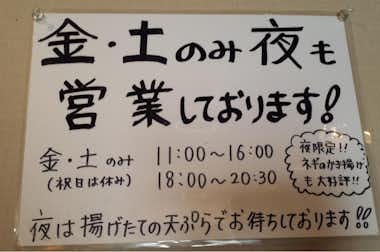 金・土のみ夜も
営業しております!
金・土のみ 11:00〜16:00
(祝日は休み) 18:00〜20:30
夜限定!!
ネギのかき揚げ
も大好評!!
夜は揚げたての天ぷらでお待ちしております!!